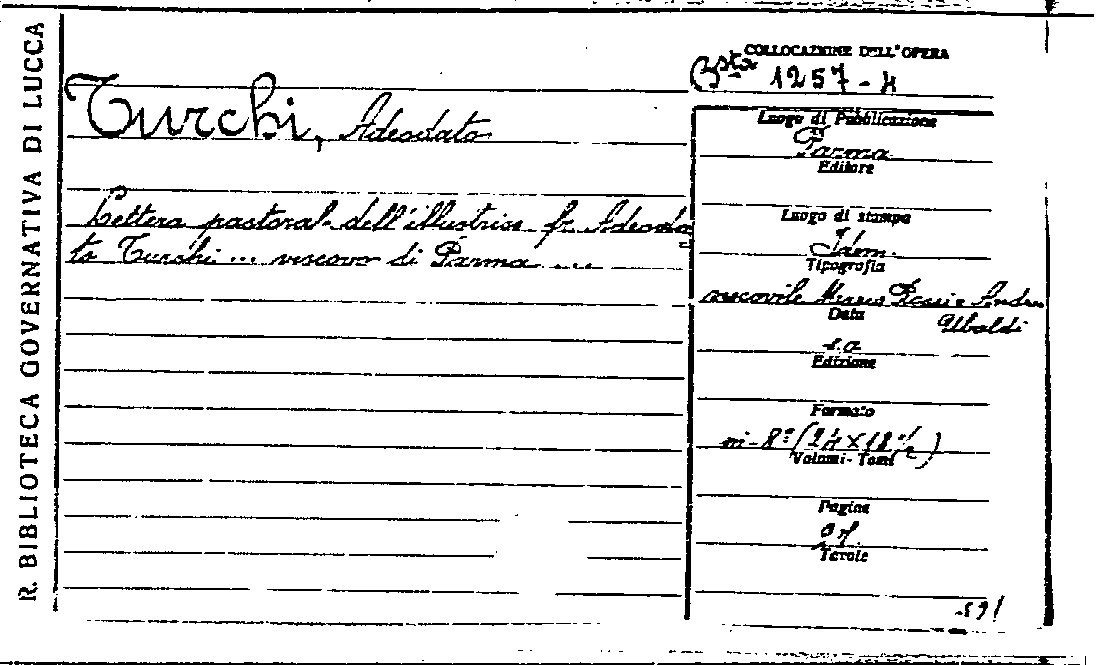 R. BIBLIOTECA GOVERNATIVA DI LUCCA
COLLOCAZIONE DELL'OPERA
Bsta 1257-4
Turchi, Adeodato
Lettera pastoral. dell'illustriss. fr. Adeoda
to Turchi ... vescovo di Parma ....
Luogo di Pubblicazione
Parma
Editore
Luogo di stampa
Idem.
Tipografia
vescovile Rossi e Andrea
Ubaldi
Data
s.a
Edizione
Formato
in-8° (24×18 1/2)
Volumi-Tomi
Pagine
Tavole